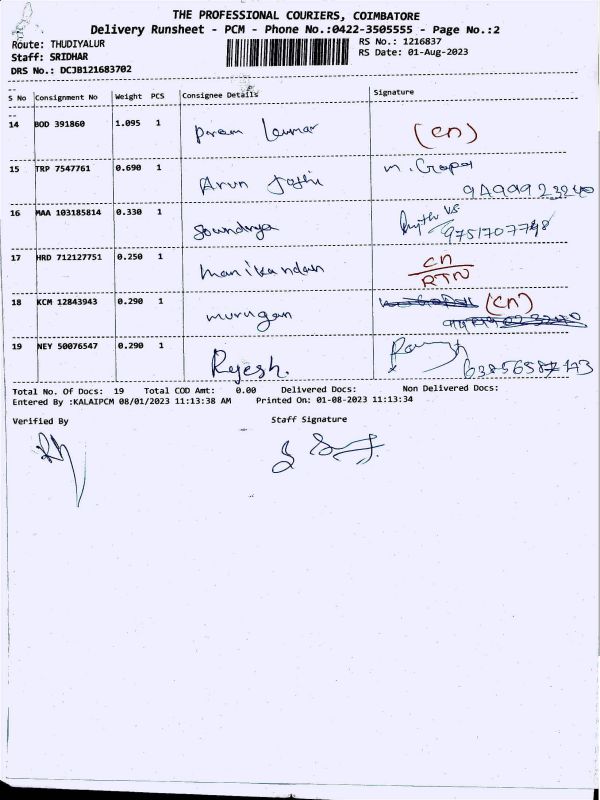 THE PROFESSIONAL COURIERS, COIMBATORE
Delivery Runsheet - PCM - Phone No.:0422-3505555 - Page No.:2
Route: THUDIYALUR RS No.: 1216837
Staff: SRIDHAR RS Date: 01-Aug-2023
DRS No.: DCJB121683702
S No Consignment No Weight PCS Consignee Details Signature
14 BOD 391860 1.095 1 (CN)
15 TRP 7547761 0.690 1 Arun
16 MAA 103185814 0.330 1 Soundrya
17 HRD 712127751 0.250 1 Manikandan CN
RTN
18 KCM 12843943 0.290 1 murugan (CN)
19 NEY 50076547 0.290 1 Rejesh.
Total No. Of Docs: 19 Total COD Amt: 0.00 Delivered Docs: Non Delivered Docs:
Entered By :KALAIPCM 08/01/2023 11:13:38 AM Printed On: 01-08-2023 11:13:34
Verified By Staff Signature